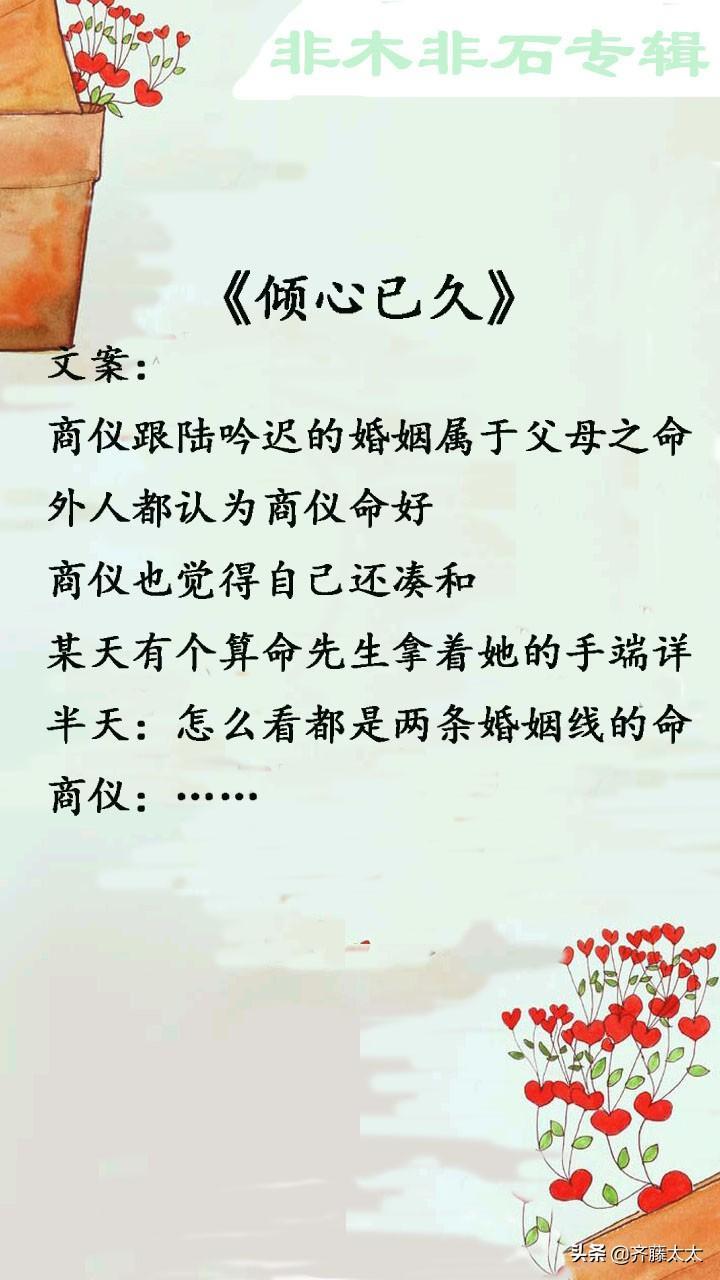 非木非石专辑
《倾心已久》
文案：
商仪跟陆吟迟的婚姻属于父母之命
外人都认为商仪命好
商仪也觉得自己还凑和
某天有个算命先生拿着她的手端详
半天：怎么看都是两条婚姻线的命
商仪：……
头条 @齐藤太太